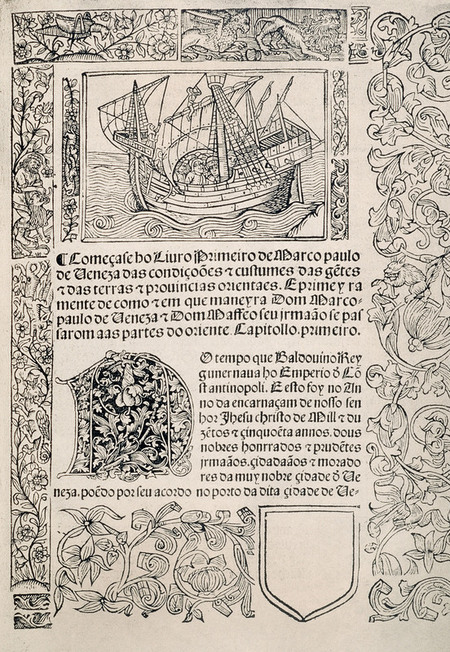 ⸿ Começase ho Liuro Primeiro de Marco paulo
de Ueneza das condiçoões ⁊ custumes das gẽtes
⁊ das terras ⁊ prouincias orientaes. E prime y ra
mente de como ⁊ em que maneyra Dom Marco-
paulo de Ueneza ⁊ Dom Maffeo seu irmaão se pas
sarom aas partes do oriente. Capitollo. primeiro.
NO tempo que Baldouino Rey
guuernaua ho Emperio ď Cõ
stantinopoli. E esto foy no An
no da encarnaçam de nosso sen
hor Jhesu christo de Mill ⁊ du
zẽtos ⁊ çinquoẽta annos. dous
nobres honrrados ⁊ prudẽtes
jrmaãos. çidadaãos ⁊ morado
res da muy nobre çidade ď Ue
neza. poẽdo por seu acordo no porto da dita çidade de Ue-